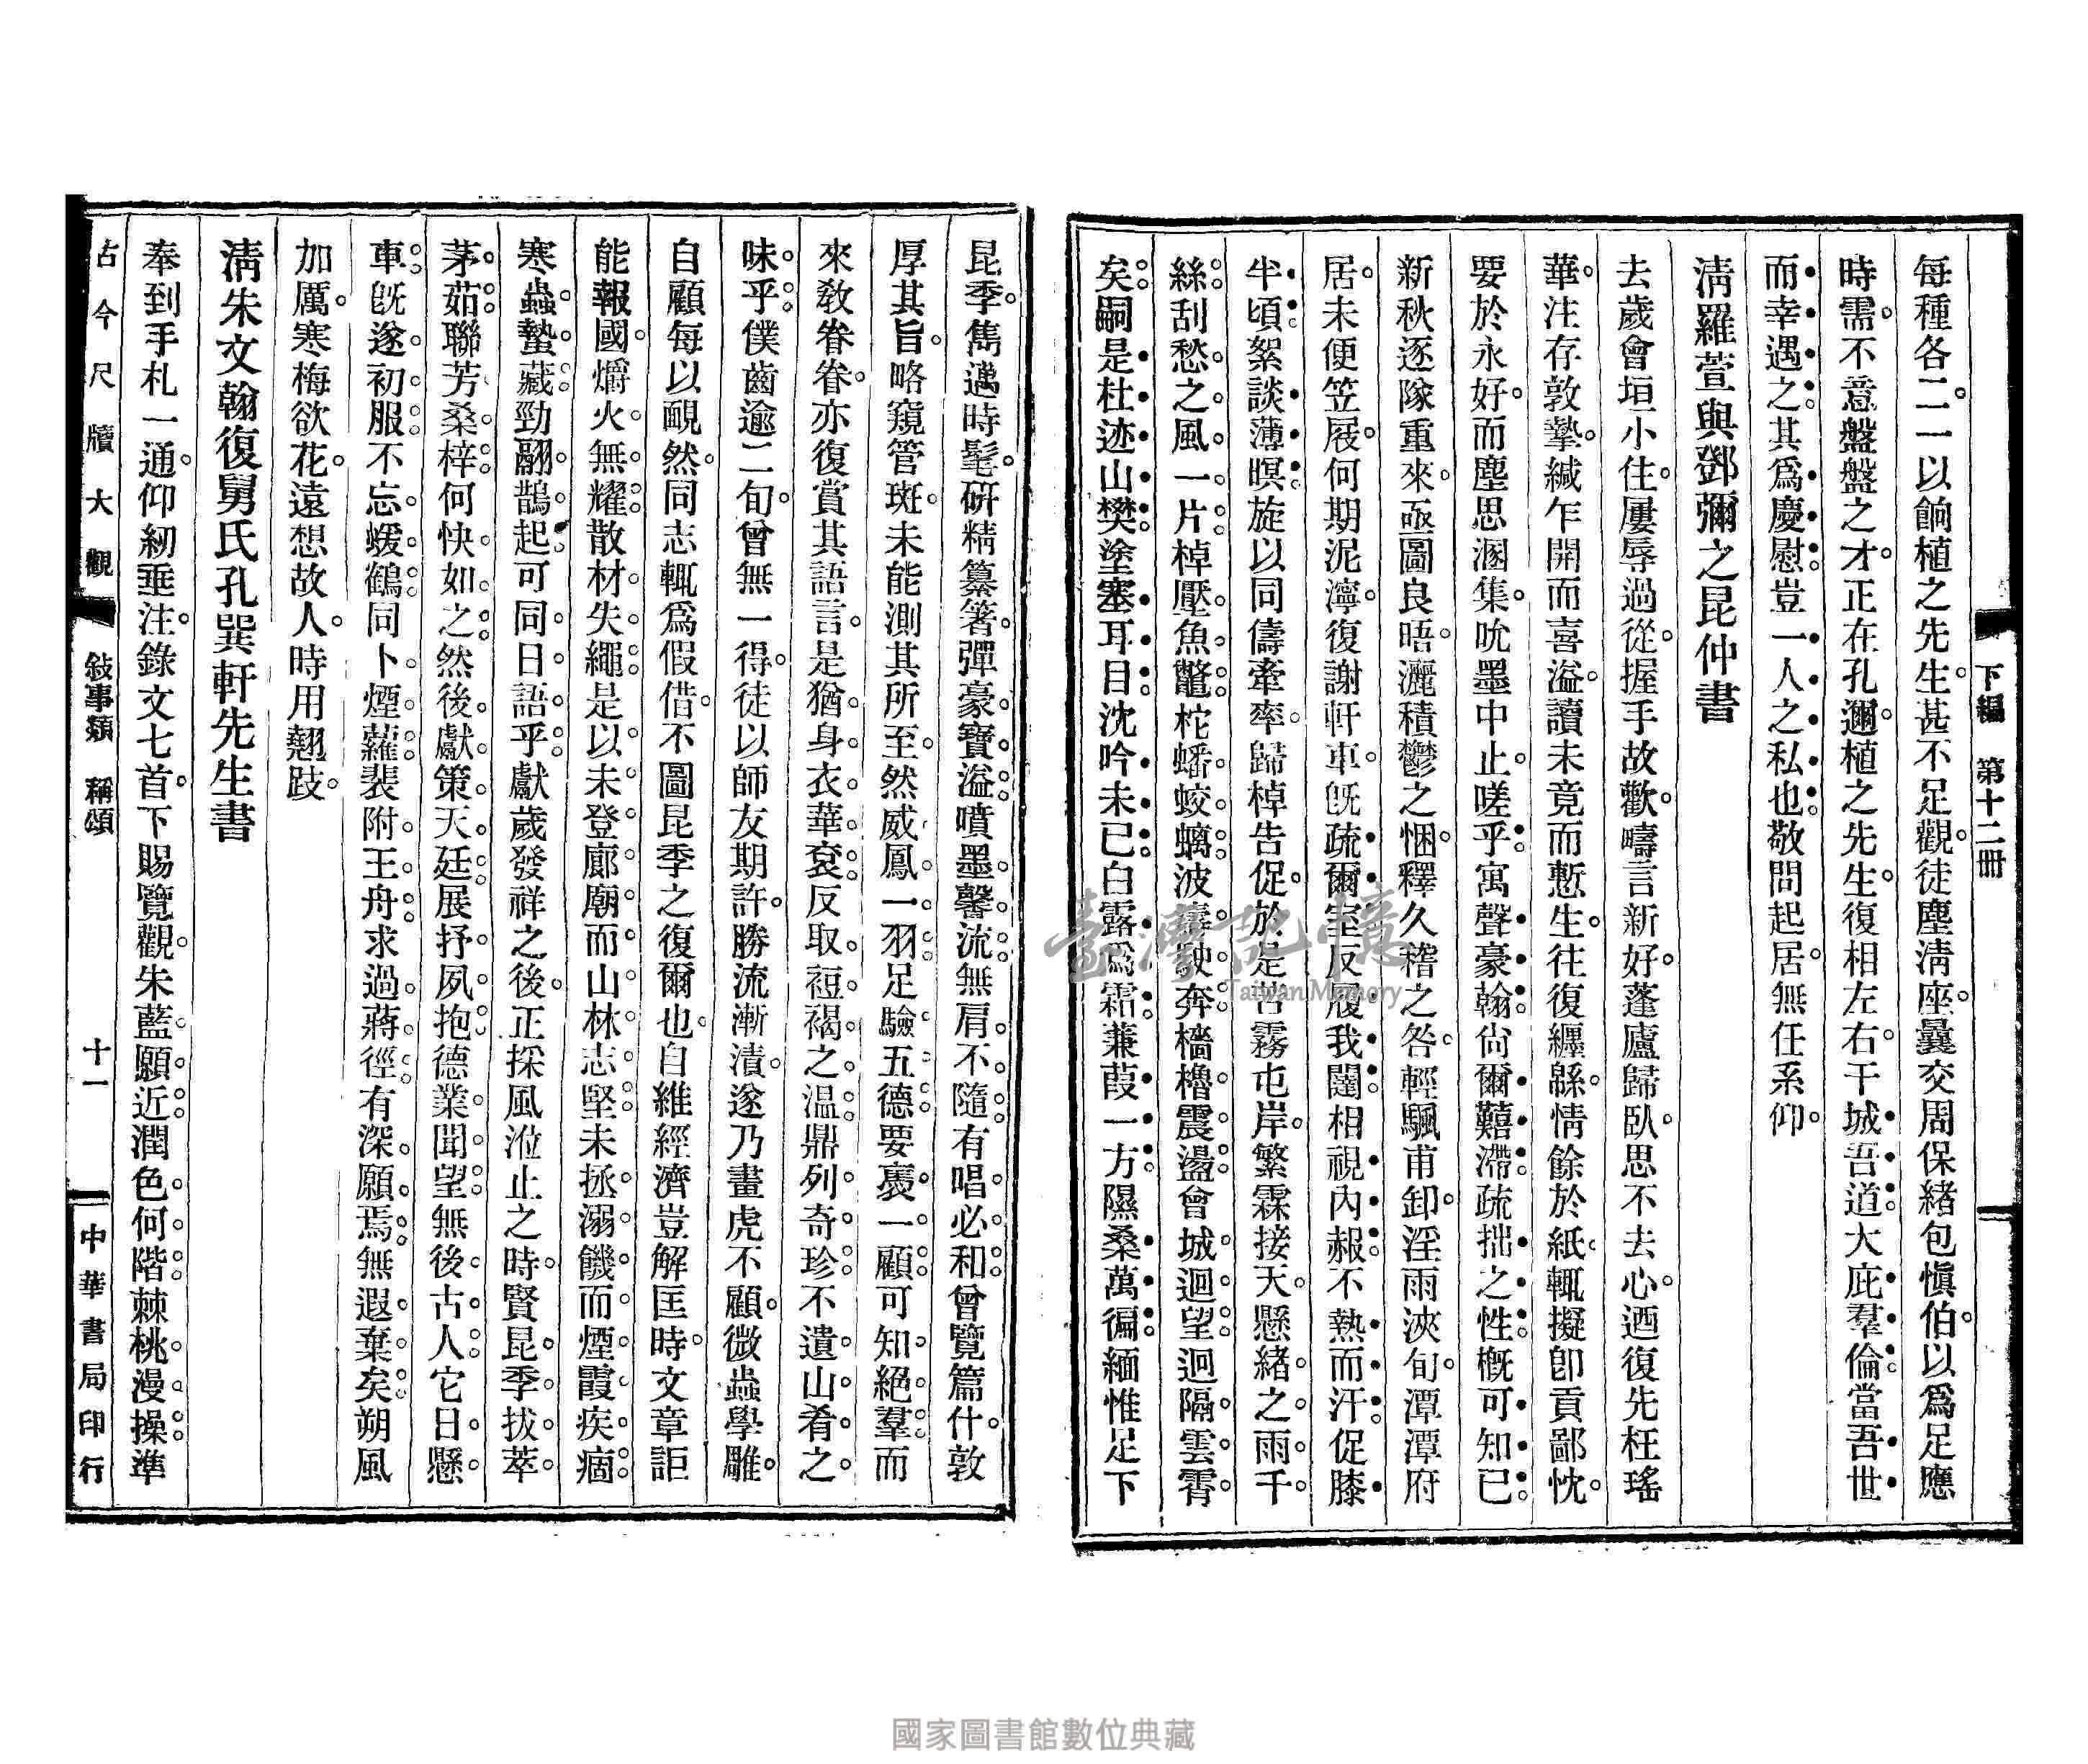 下編　第十二冊
每種各二一以餉植之先生。甚不足觀。徒塵淸座。曩交周保緒包愼伯。以爲足應
時需。不意盤盤之才。正在孔邇。植之先生。復相左右。干城吾道。大庇羣倫。當吾世
而幸遇之。其爲慶慰。豈一人之私也。敬問起居。無任系仰。
淸羅萱與鄧彌之昆仲書
去歲會垣小住。屢辱過從。握手故歡。疇言新好。蓬廬歸臥。思不去心。迺復先枉瑤
華。注存敦摯。緘乍開而喜溢。讀未竟而慙生。往復纏緜。情餘於紙。輒擬卽貢鄙忱。
要於永好。而塵思溷集。吮墨中止。嗟乎。寓聲豪翰。尙爾囏滯。疏拙之性。槪可知已。
新秋逐隊重來。亟圖良晤。灑積鬱之悃。釋久稽之咎。輕颿甫卸。淫雨浹旬。潭潭府
居。未便笠屐。何期泥濘。復謝軒車。旣疏爾室。反履我闥。相視內赧。不熱而汗。促膝
半頃。絮談薄暝。旋以同儔牽率。歸棹告促。於是苦霧屯岸。繁霖接天。懸緒之雨。千
絲刮愁之風。一片棹壓魚鼈。柁蟠蛟螭。波濤駛奔。檣櫓震盪。會城迴望。迥隔雲霄
矣。嗣是杜迹山樊。塗塞耳目。沈吟未已。白露爲霜。蒹葭一方。隰桑萬徧。緬惟足下
昆季。雋邁時髦。硏精纂箸。彈豪寶溢。噴墨馨流。無肩不隨。有唱必和。曾覽篇什。敦
厚其旨。略窺管斑。未能測其所至。然威鳳一羽。足驗五德。要褭一顧。可知絕羣。而
來敎眷眷。亦復賞其語言。是猶身衣華袞。反取裋褐之溫。鼎列奇珍。不遺山肴之
味。乎。僕齒逾二旬。曾無一得。徒以師友期許。勝流漸漬。遂乃畫虎不顧。微蟲學雕。
自顧每以靦然。同志輒爲假借。不圖昆季之復爾也。自維經濟豈解匡時。文章詎
能報國。爝火無耀。散材失繩。是以未登廊廟。而山林志堅。未拯溺饑。而煙霞疾痼。
寒蟲蟄藏。勁翮鵲起。可同日語乎。獻歲發祥之後。正採風涖止之時。賢昆季拔萃。
茅茹。聯芳桑梓。何快如之。然後獻策天廷。展抒夙抱。德業聞望。無後古人。它日懸
車旣遂。初服不忘。蝯鶴同卜。煙蘿裴附。王舟求過。蔣徑有深願焉。無遐棄矣。朔風
加厲。寒梅欲花。遠想故人。時用翹跂。
淸朱文翰復舅氏孔巽軒先生書
奉到手札一通。仰紉垂注。錄文七首。下賜覽觀。朱藍願近。潤色何階。棘桃漫操。準
古今尺牘大觀　敍事類　稱頌　十一　中華書局印行
臺灣記憶
Taiwan Memory
國家圖書館數位典藏